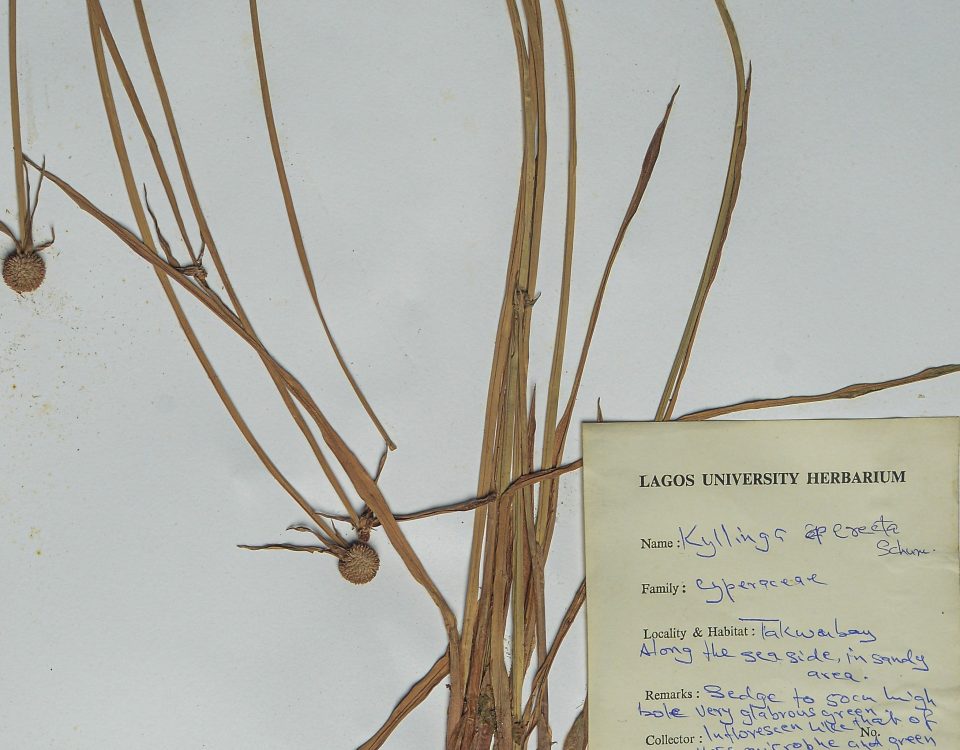 LAGOS UNIVERSITY HERBARIUM
Name: Kyllinga erecta
Schum.
Family: Cyperaceae
Locality & Habitat: Takwabay
Along the sea side, in sandy
area.
Remarks: Sedge to 50cm high
very glabrous green
Collector: Inflorescen like that of No.
and green